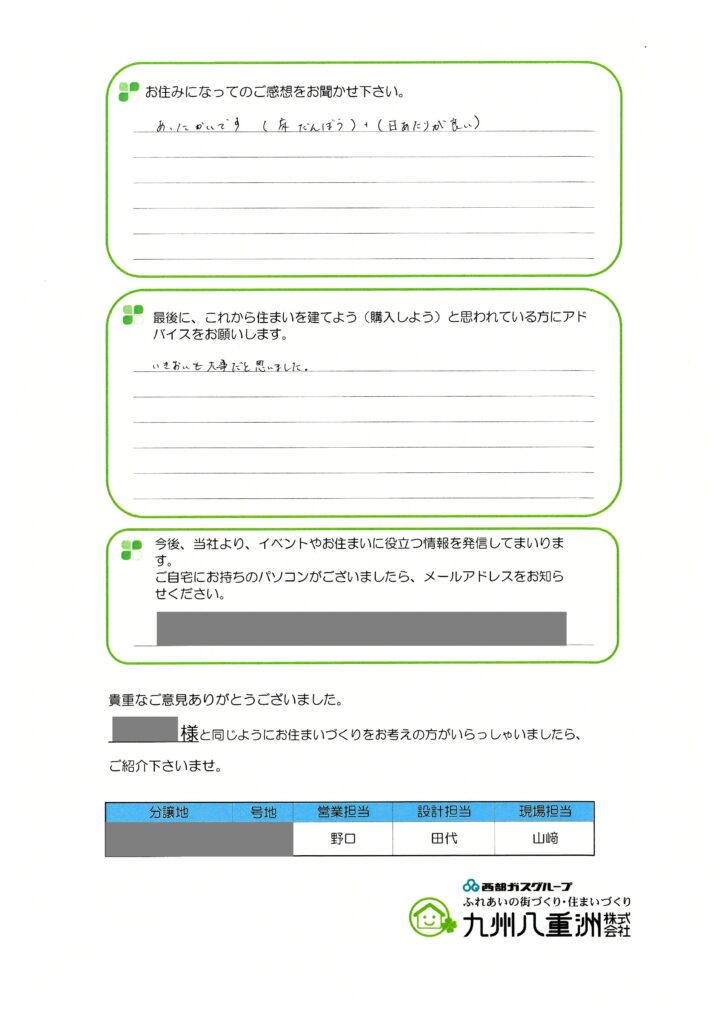 お住みになってのご感想をお聞かせ下さい。
あったかいです (床だんぼう)+(日あたりが良い)
最後に、これから住まいを建てよう(購入しよう)と思われている方にアド
バイスをお願いします。
いきおいも大事だと思いました。
今後、当社より、イベントやお住まいに役立つ情報を発信してまいりま
す。
ご自宅にお持ちのパソコンがございましたら、メールアドレスをお知ら
せください。
貴重なご意見ありがとうございました。
様と同じようにお住まいづくりをお考えの方がいらっしゃいましたら、
ご紹介下さいませ。
分譲地 号地 営業担当 設計担当 現場担当
野口 田代 山﨑
西部ガスグループ
ふれあいの街づくり・住まいづくり
九州八重洲株式会社